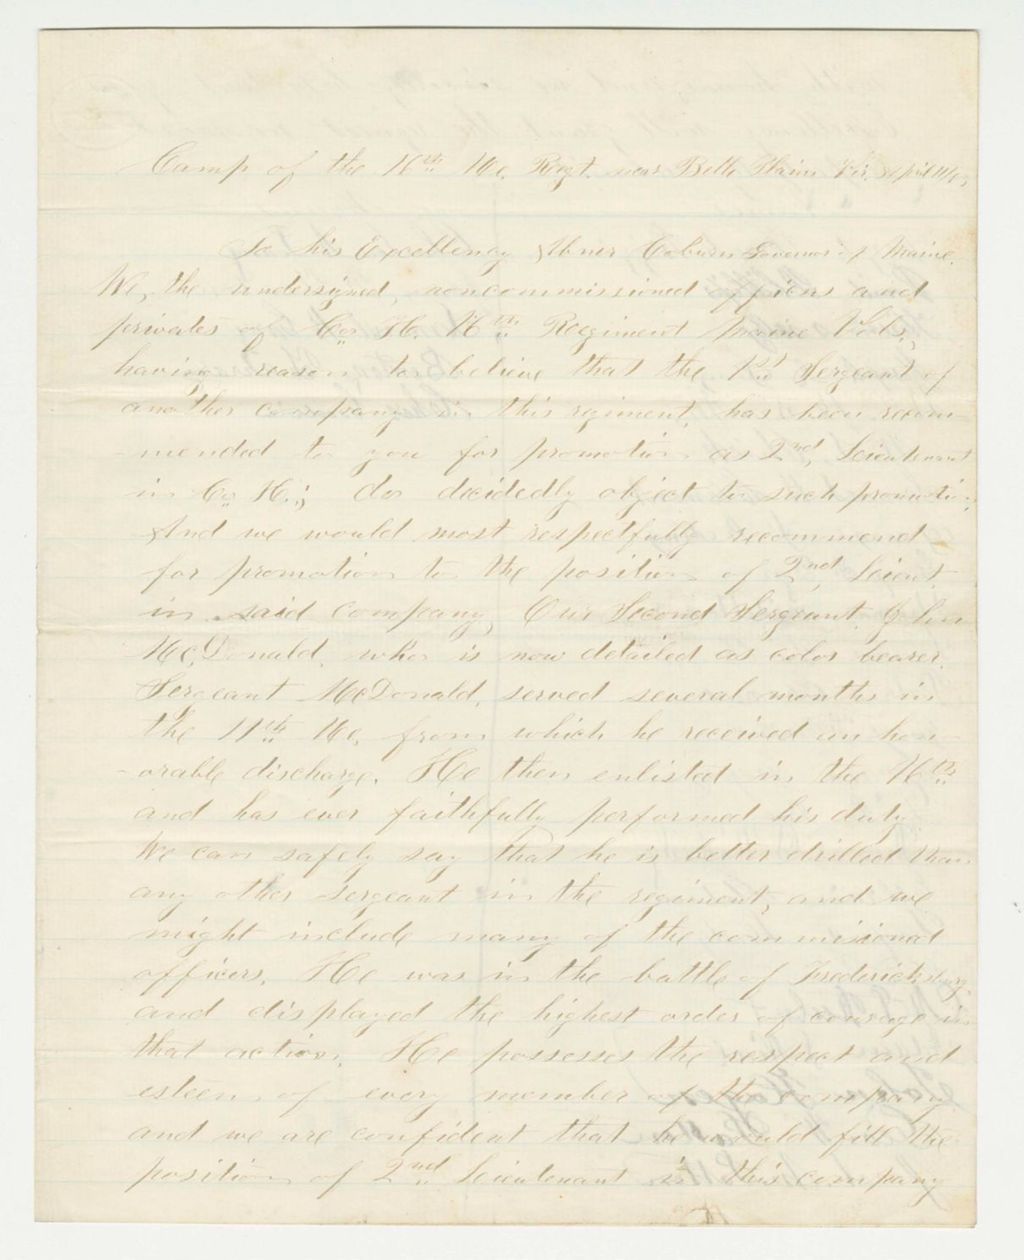 Camp of the 16th Me. Regt. near Belle Plain Vir. April
To his Excellency Abner Coburn Governor of Maine.
We, the undersigned, noncommissioned officers and
privates of Co. H. 16th Regiment Maine Vols.,
having reason to believe that the 1st Sergeant of
another company in this regiment, has been recom-
-mended to you for promotion as 2nd, Lieutenant
in Co. H.; do decidedly object to such promotion.
And we would most respectfully recommend
for promotion to the position of 2nd, Lieut.
in said company, Our Second Sergeant, John
McDonald, who is now detailed as color bearer.
Sergeant McDonald, served several months in
the 11th Me, from which he received an hon-
-orable discharge. He then enlisted in the 16th
and has ever faithfully performed his duty.
We can safely say that he is better drilled than
any other sergeant in the regiment, and we
might include many of the commissioned
officers. He was in the battle of Fredericksburg
and displayed the highest order of courage in
that action. He possesses the respect and
esteem of every member of the company
and we are confident that he would fill the
position of 2nd Lieutenant in this company